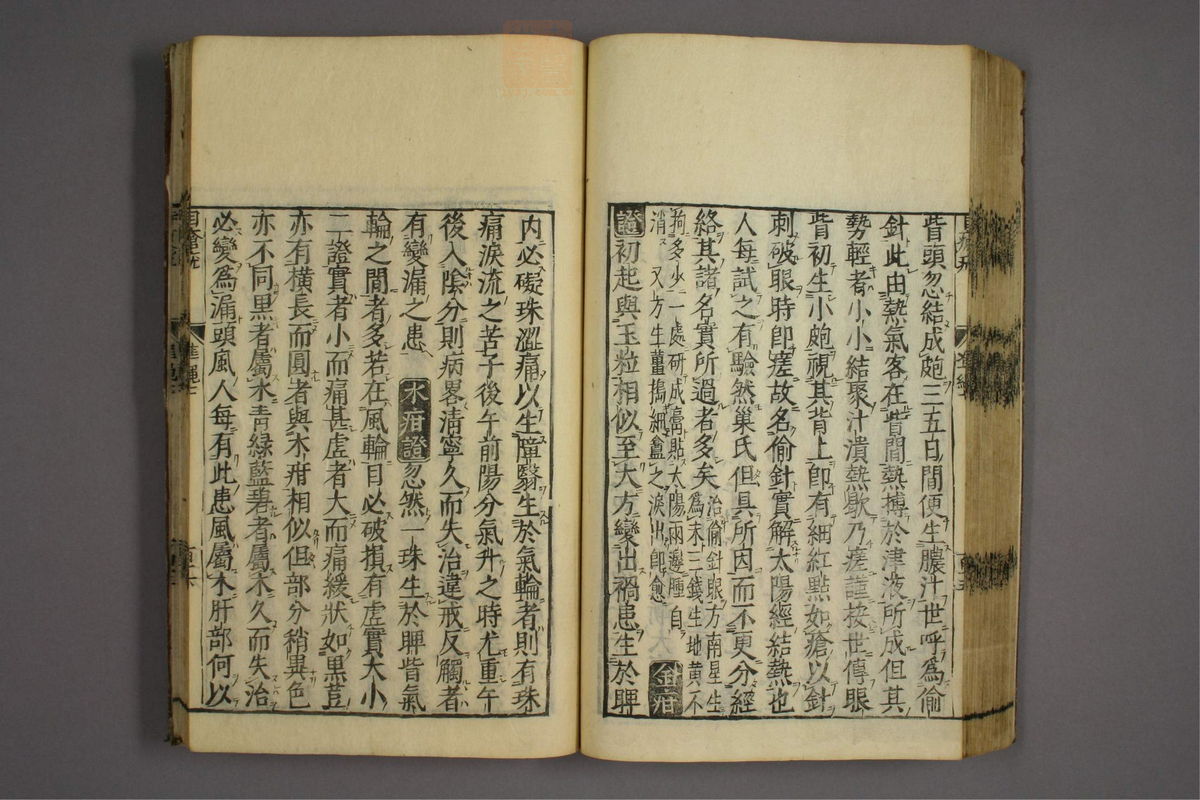 眥頭忽結成皰三五日間便生膿汁世呼爲偷
針此由熱氣客在眥間熱搏於津液所成但其
勢輕者小小結聚汁潰熱歇乃瘥謹按世傳眼
眥初生小皰視其背上卽有細紅點如瘡以針
刺破眼時卽瘥故名偷針實解太陽經結熱也
人每試之有驗然巢氏但具所因而不更分經
絡其諸名實所過者多矣治偷針眼方南星生
爲末三錢生地黃不
拘多少一處研成膏貼太陽兩邊腫自
消 又方生薑搗細盦之淚出卽愈
金疳
證初起與玉粒相似至大方變出禍患生於睥
内必礙珠澀痛以生障翳生於氣輪者則有珠
痛淚流之苦子後午前陽分氣升之時尤重午
後入陰分則病畧淸寧久而失治違戒反觸者
有變漏之患 水疳證忽然一珠生於睥眥氣
輪之間者多若在風輪目必破損有虛實大小
二證實者小而痛甚虛者大而痛緩狀如黑荳
亦有橫長而圓者與木疳相似但部分稍異色
亦不同黑者屬水靑綠藍碧者屬木久而失治
必變爲漏頭風人每有此患風屬木肝部何以